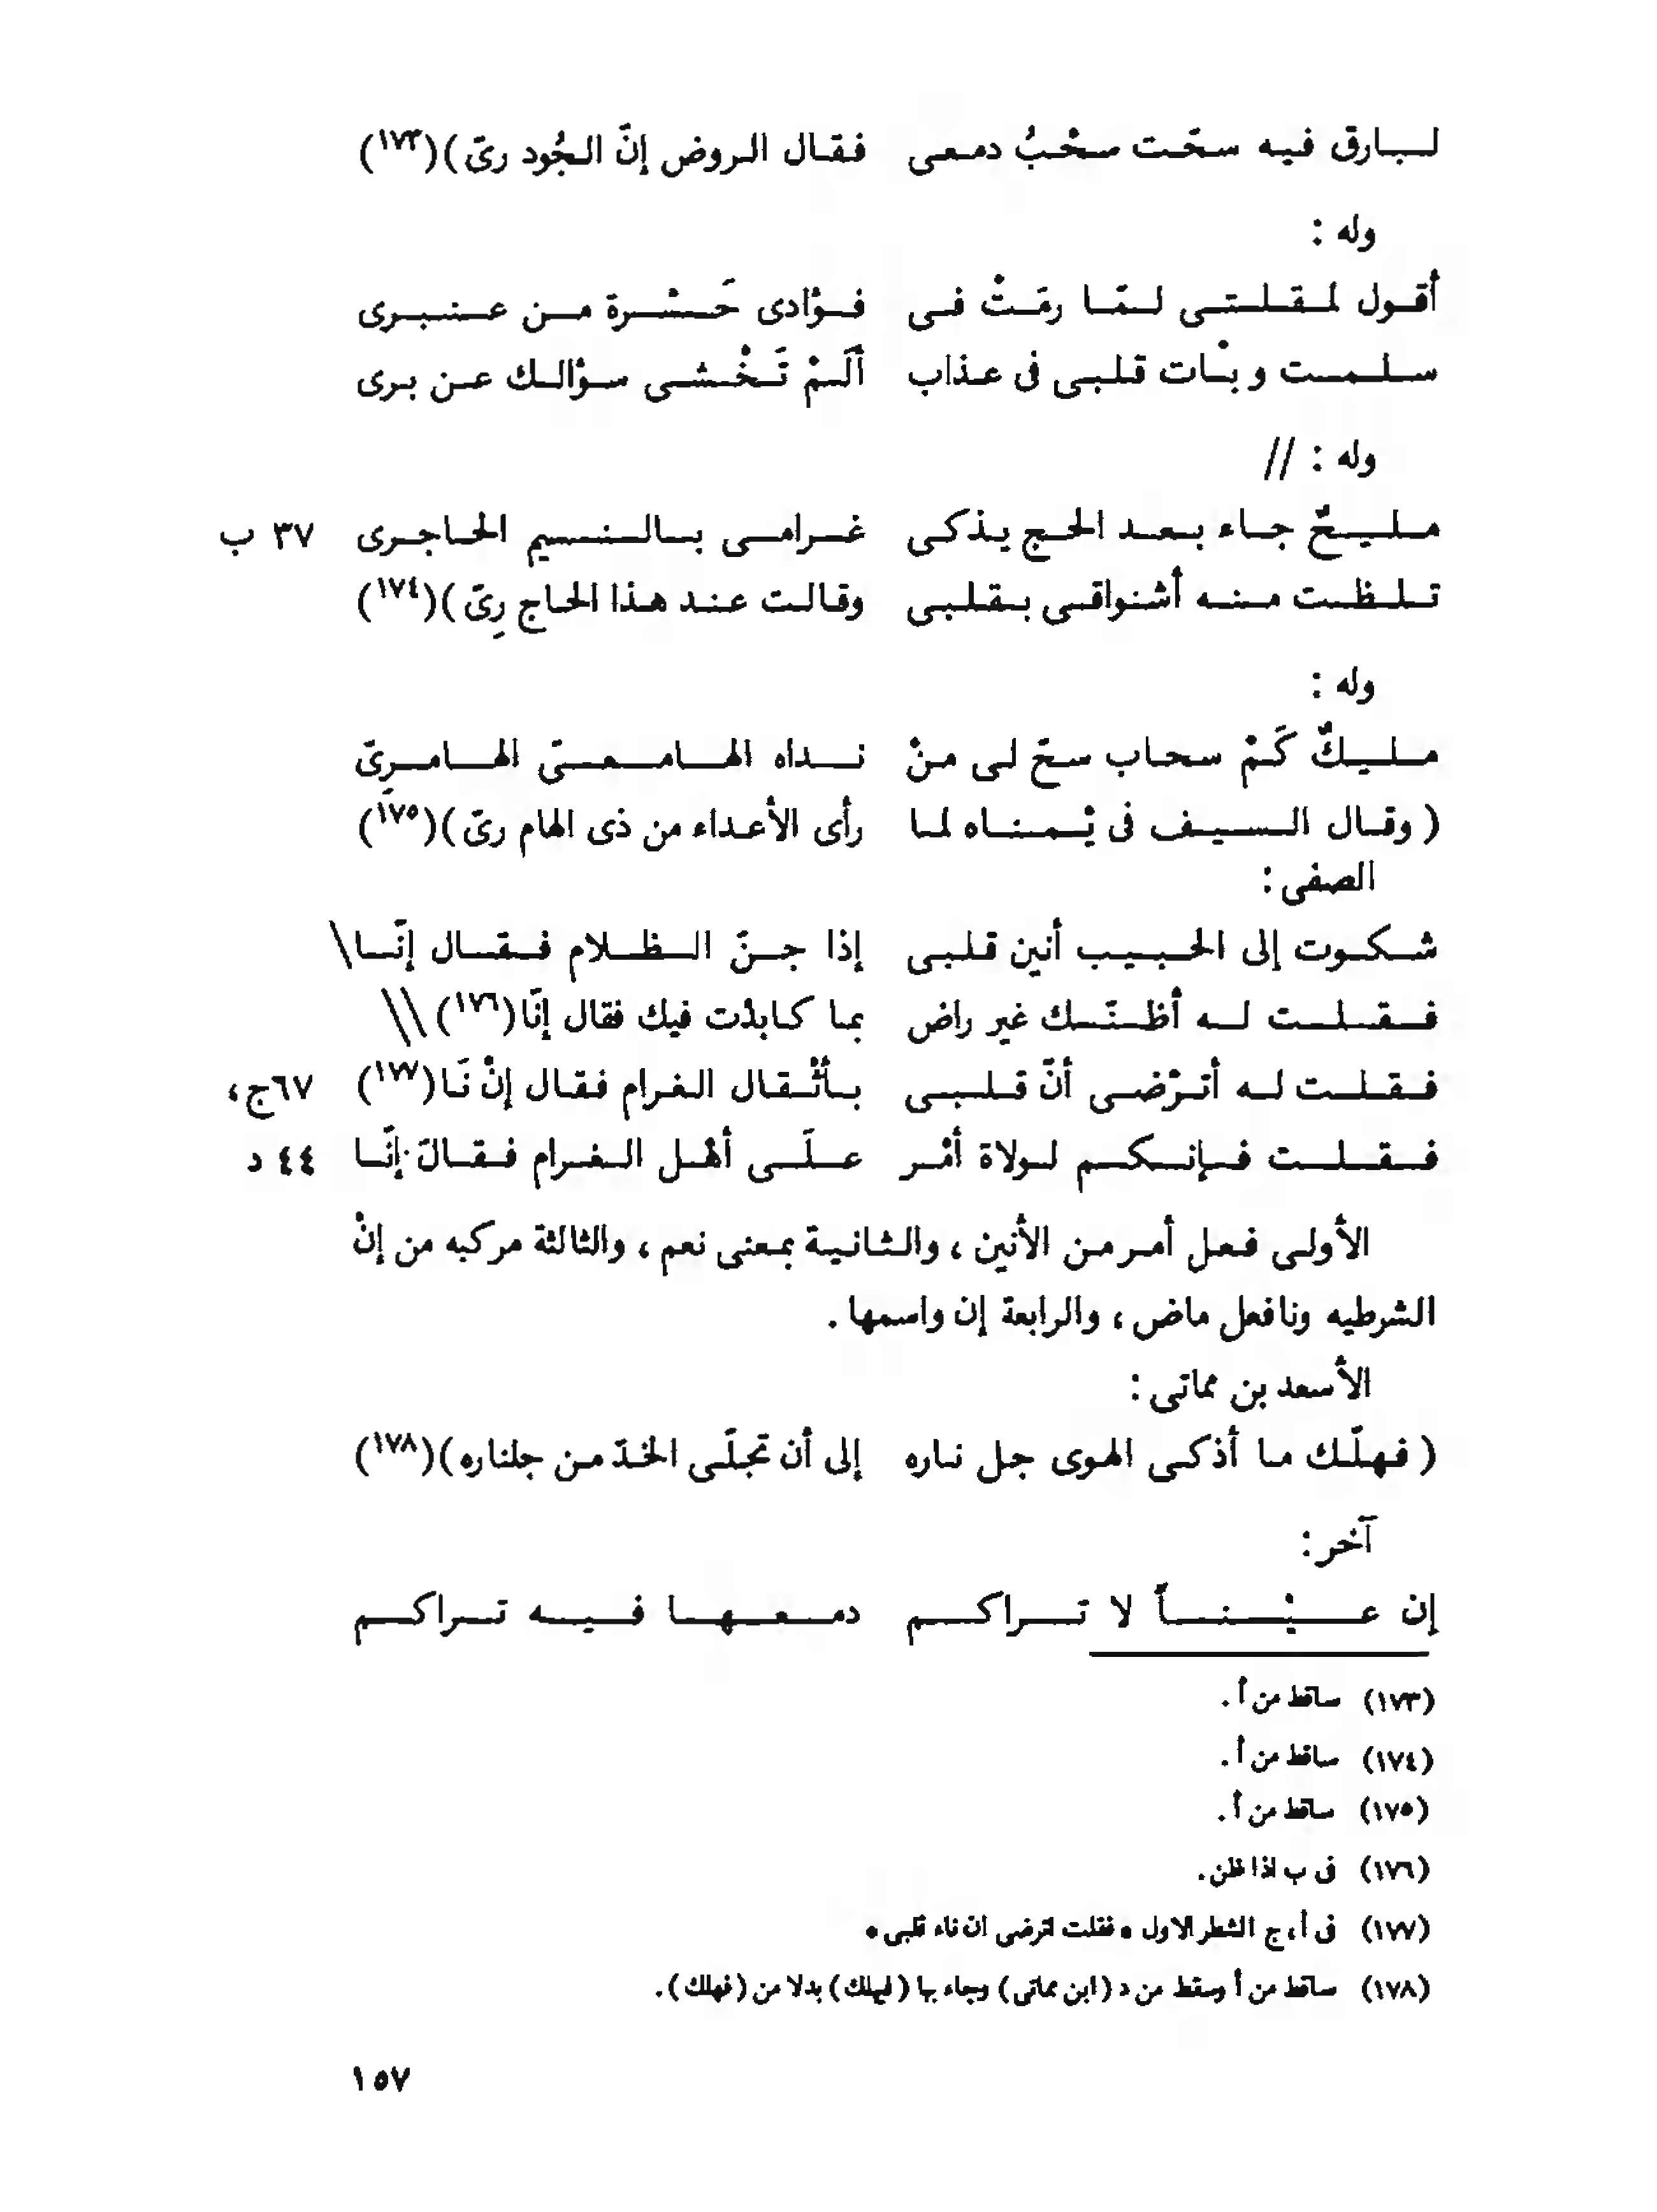 لـبارق فيه سحّت سحْبُ دمعى فقال الروض إنّ الجُود رىّ )(١٧٣)
وله :
أقول لمقلتى لمّا رمَتْ فى فؤادى حَسْرة من عنبرى
سلمت وبْات قلبى فى عذاب ألَمْ تَخْشى سؤالك عن برى
وله : //
مليحٌ جاء بعد الحج يذكى غرامى بالنسيم الحاجرى ٣٧ ب
تلظت منه أشنواقى بقلبى وقالت عند هذا الحاج رِىّ )(١٧٤)
وله :
مليكٌ كَمْ سحاب سحّ لى منْ نداه الهامعىّ الهامرِىّ
( وقال السيف فى يُمناه لما رأى الأعداء من ذى الهام رىّ )(١٧٥)
الصفى :
شكوت إلى الحبيب أنين قلبى إذا جنّ الظلام فقال إنّا\
فقلت له أظنّك غير راض بما كابدْت فيك فقال إنّا(١٧٦) \\
فقلت له أترْضى أنّ قلبى بأثْقال الغرام فقال إنْ نَا(١٧٧) ٦٧ج ،
فقلت فإنكم لولاة أمْر علَى أهْل الغرام فقالَ إنّا ٤٤ د
الأولى فعل أمر من الأنين ، والثانية بمعنى نعم ، والثالثة مركبه من إنْ
الشرطيه ونافعل ماض ، والرابعة إن واسمها .
الأسعد بن مماتى :
( فهلّك ما أذكى الهوى جل ناره إلى أن تجلّى الخدّ من جلناره )(١٧٨)
آخر :
إن عيْناً لا تراكم دمعها فيه تراكم
(١٧٣) ساقط من أ .
(١٧٤) ساقط من أ .
(١٧٥) ساقط من أ .
(١٧٦) فى ب اذا ظن .
(١٧٧) فى أ ، ج الشطر الاول « فقلت اترضى ان ناء قلبى »
(١٧٨) ساقط من أ وسقط من د ( ابن مماتى ) وجاء بها ( ليهلك ) بدلا من ( فهلك ) .
١٥٧